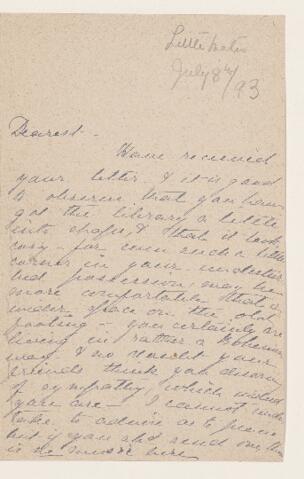 Little Metis
July 8th/93
Dearest -
Have received
your letter & it is good
to observe that you have
got the library a little
into shape & that it looks
cosy - for even such a little
corner in your undisturbed
possession may be
more comfortable than a
wider space on the old
footing - you certainly are
living in rather a Bohemian
way & no doubt your
friends think you deserving
of sympathy, which indeed
you are - I cannot under
take to advise as to
but if you shd send one, there
is no more here